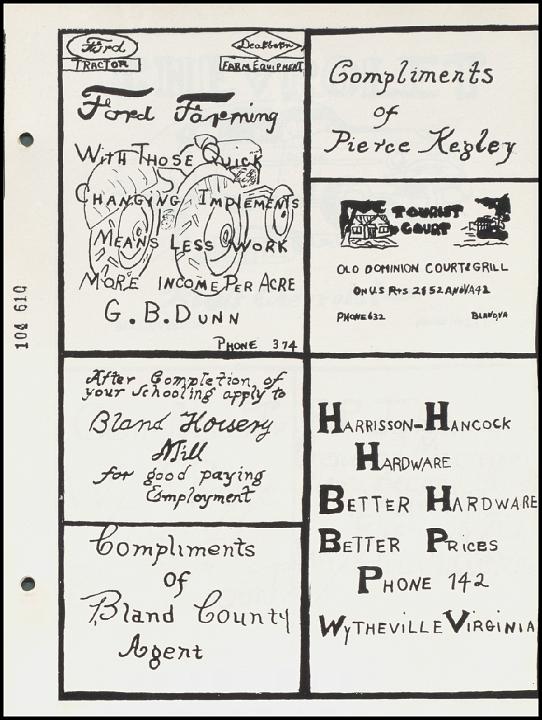 Ford
TRACTOR
Dearborn
FARM EQUIPMENT
Ford Farming
WITH THOSE QUICK
CHANGING IMPLEMENTS
MEANS LESS WORK
MORE INCOME PER ACRE
G. B. DUNN
PHONE 374
Compliments
of
Pierce Kegley
TOURIST
COURT
OLD DOMINION COURT & GRILL
ON U.S RTS 21 & 52 AND VA 42
PHONE 632 BLAND, VA
After Completion of
your schooling apply to
Bland Hoisery
Mill
for good paying
Employment
HARRISSON-HANCOCK
HARDWARE
BETTER HARDWARE
BETTER PRICES
PHONE 142
WYTHEVILLE VIRGINIA
Compliments
of
Bland County
Agent
104 610